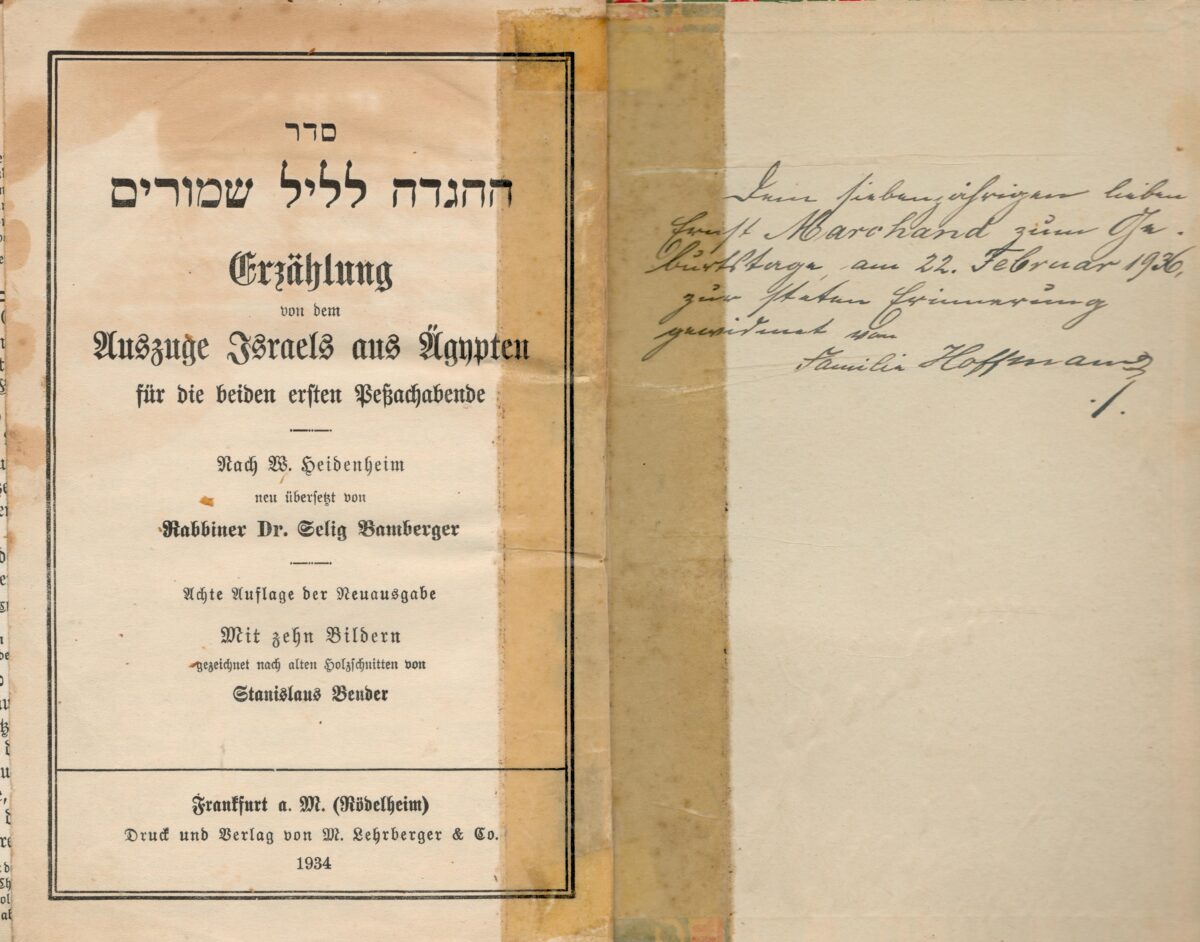 סדר
ההגדה לליל שמורים
Erzählung
von dem
Auszuge Israels aus Ägypten
für die beiden ersten Peßachabende
Nach W. Heidenheim
neu übersetzt von
Rabbiner Dr. Selig Bamberger
Achte Auflage der Neuausgabe
Mit zehn Bildern
gezeichnet nach alten Holzschnitten von
Stanislaus Bender
Frankfurt a. M. (Rödelheim)
Druck und Verlag von M. Lehrberger & Co.
1934
Dem siebenjährigen lieben
Ernst Marchand zum Ge-
burtstage, am 22. Februar 1936,
zur steten Erinnerung
gewidmet von
Familie Hoffmann